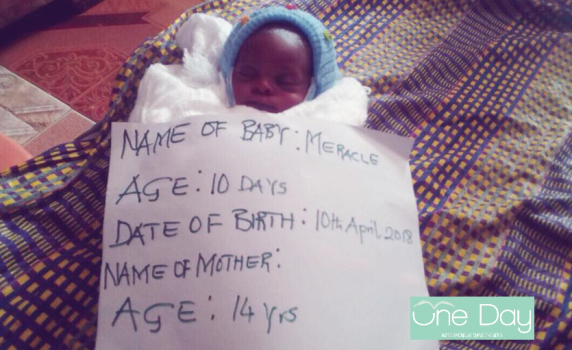 NAME OF BABY: MERACLE
AGE: 10 DAYS
DATE OF BIRTH: 10th April, 2018
NAME OF MOTHER:
AGE: 14 yrs
One Day